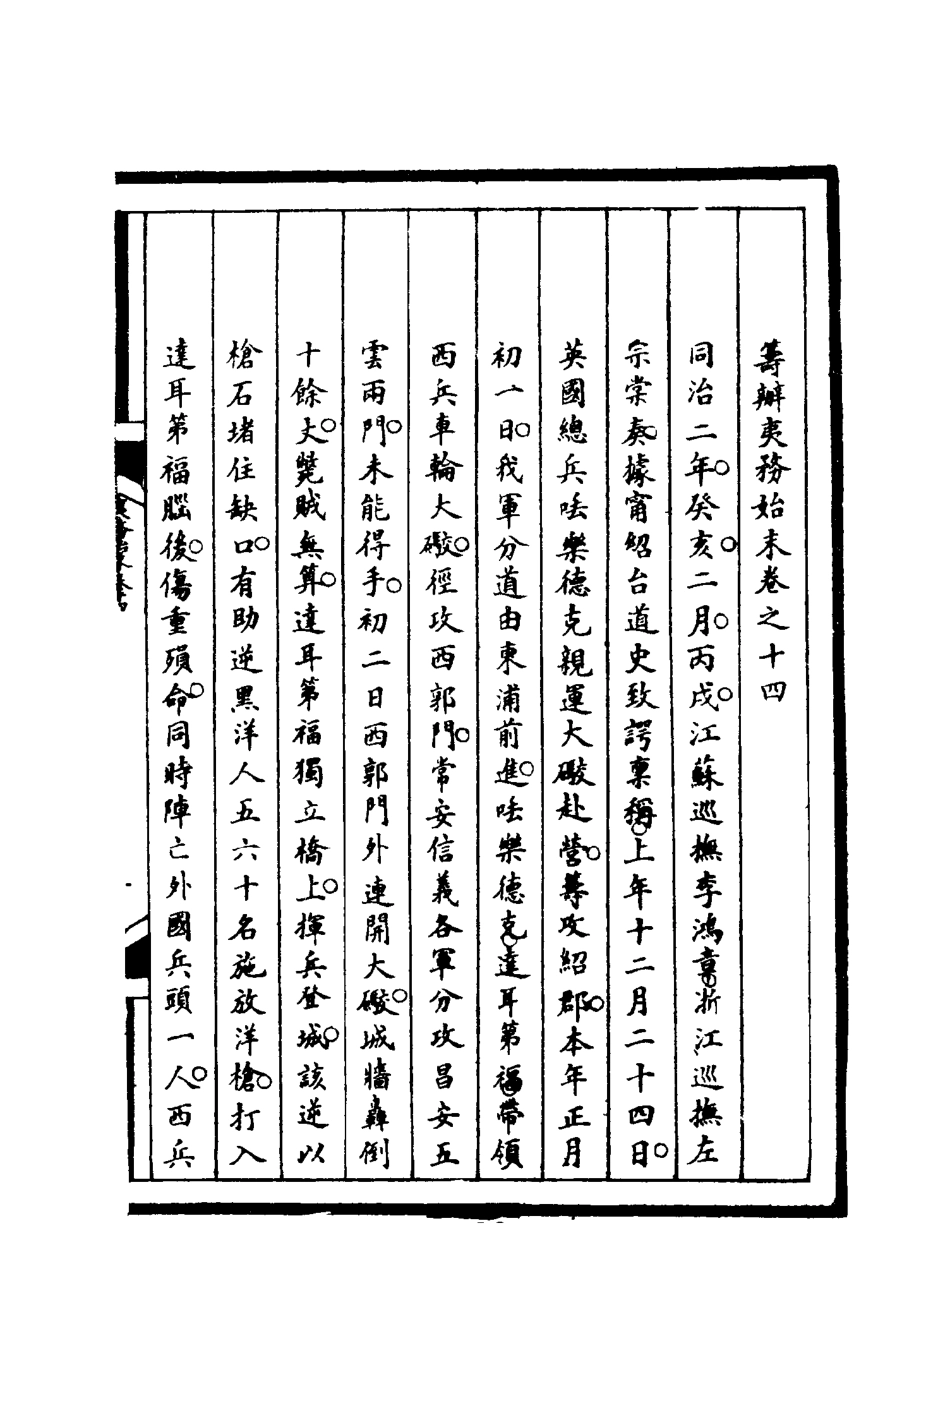 籌辦夷務始末卷之十四
同治二年○癸亥○二月○丙戌○江蘇巡撫李鴻章○浙江巡撫左
宗棠奏○據甯紹台道史致諤稟稱○上年十二月二十四日○
英國總兵呋樂德克親運大礮赴營○籌攻紹郡○本年正月
初一日○我軍分道由東浦前進○呋樂德克○達耳第福○帶領
西兵車輪大礮○徑攻西郭門○常安信義各軍分攻昌安五
雲兩門○未能得手○初二日西郭門外連開大礮○城牆轟倒
十餘丈○斃賊無算○達耳第福獨立橋上○揮兵登城○該逆以
槍石堵住缺口○有助逆黑洋人五六十名施放洋槍○打入
達耳第福腦後○傷重殞命○同時陣亡外國兵頭一人○西兵